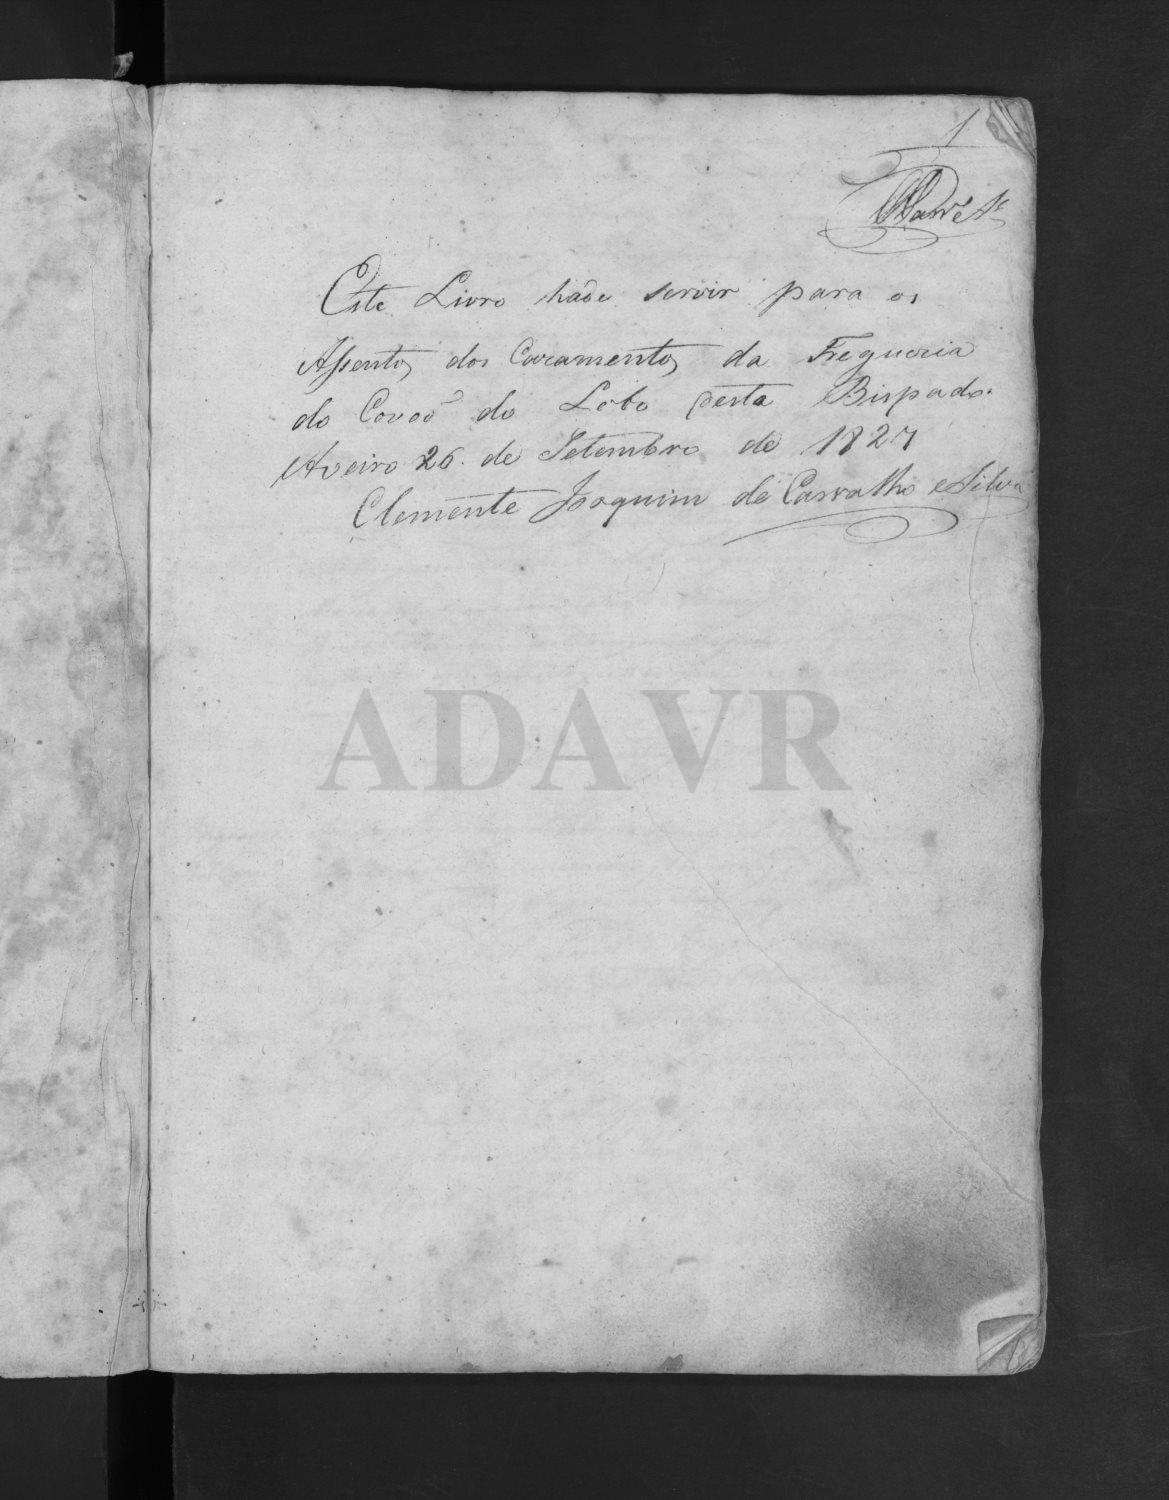 1
Este Livro hade servir para os
Assentos dos Cazamentos da Freguezia
do Covaõ do Lobo desta Bispado.
Aveiro 26 de Setembro de 1827
Clemente Joaquim de Carvalho e Silva
ADAVR